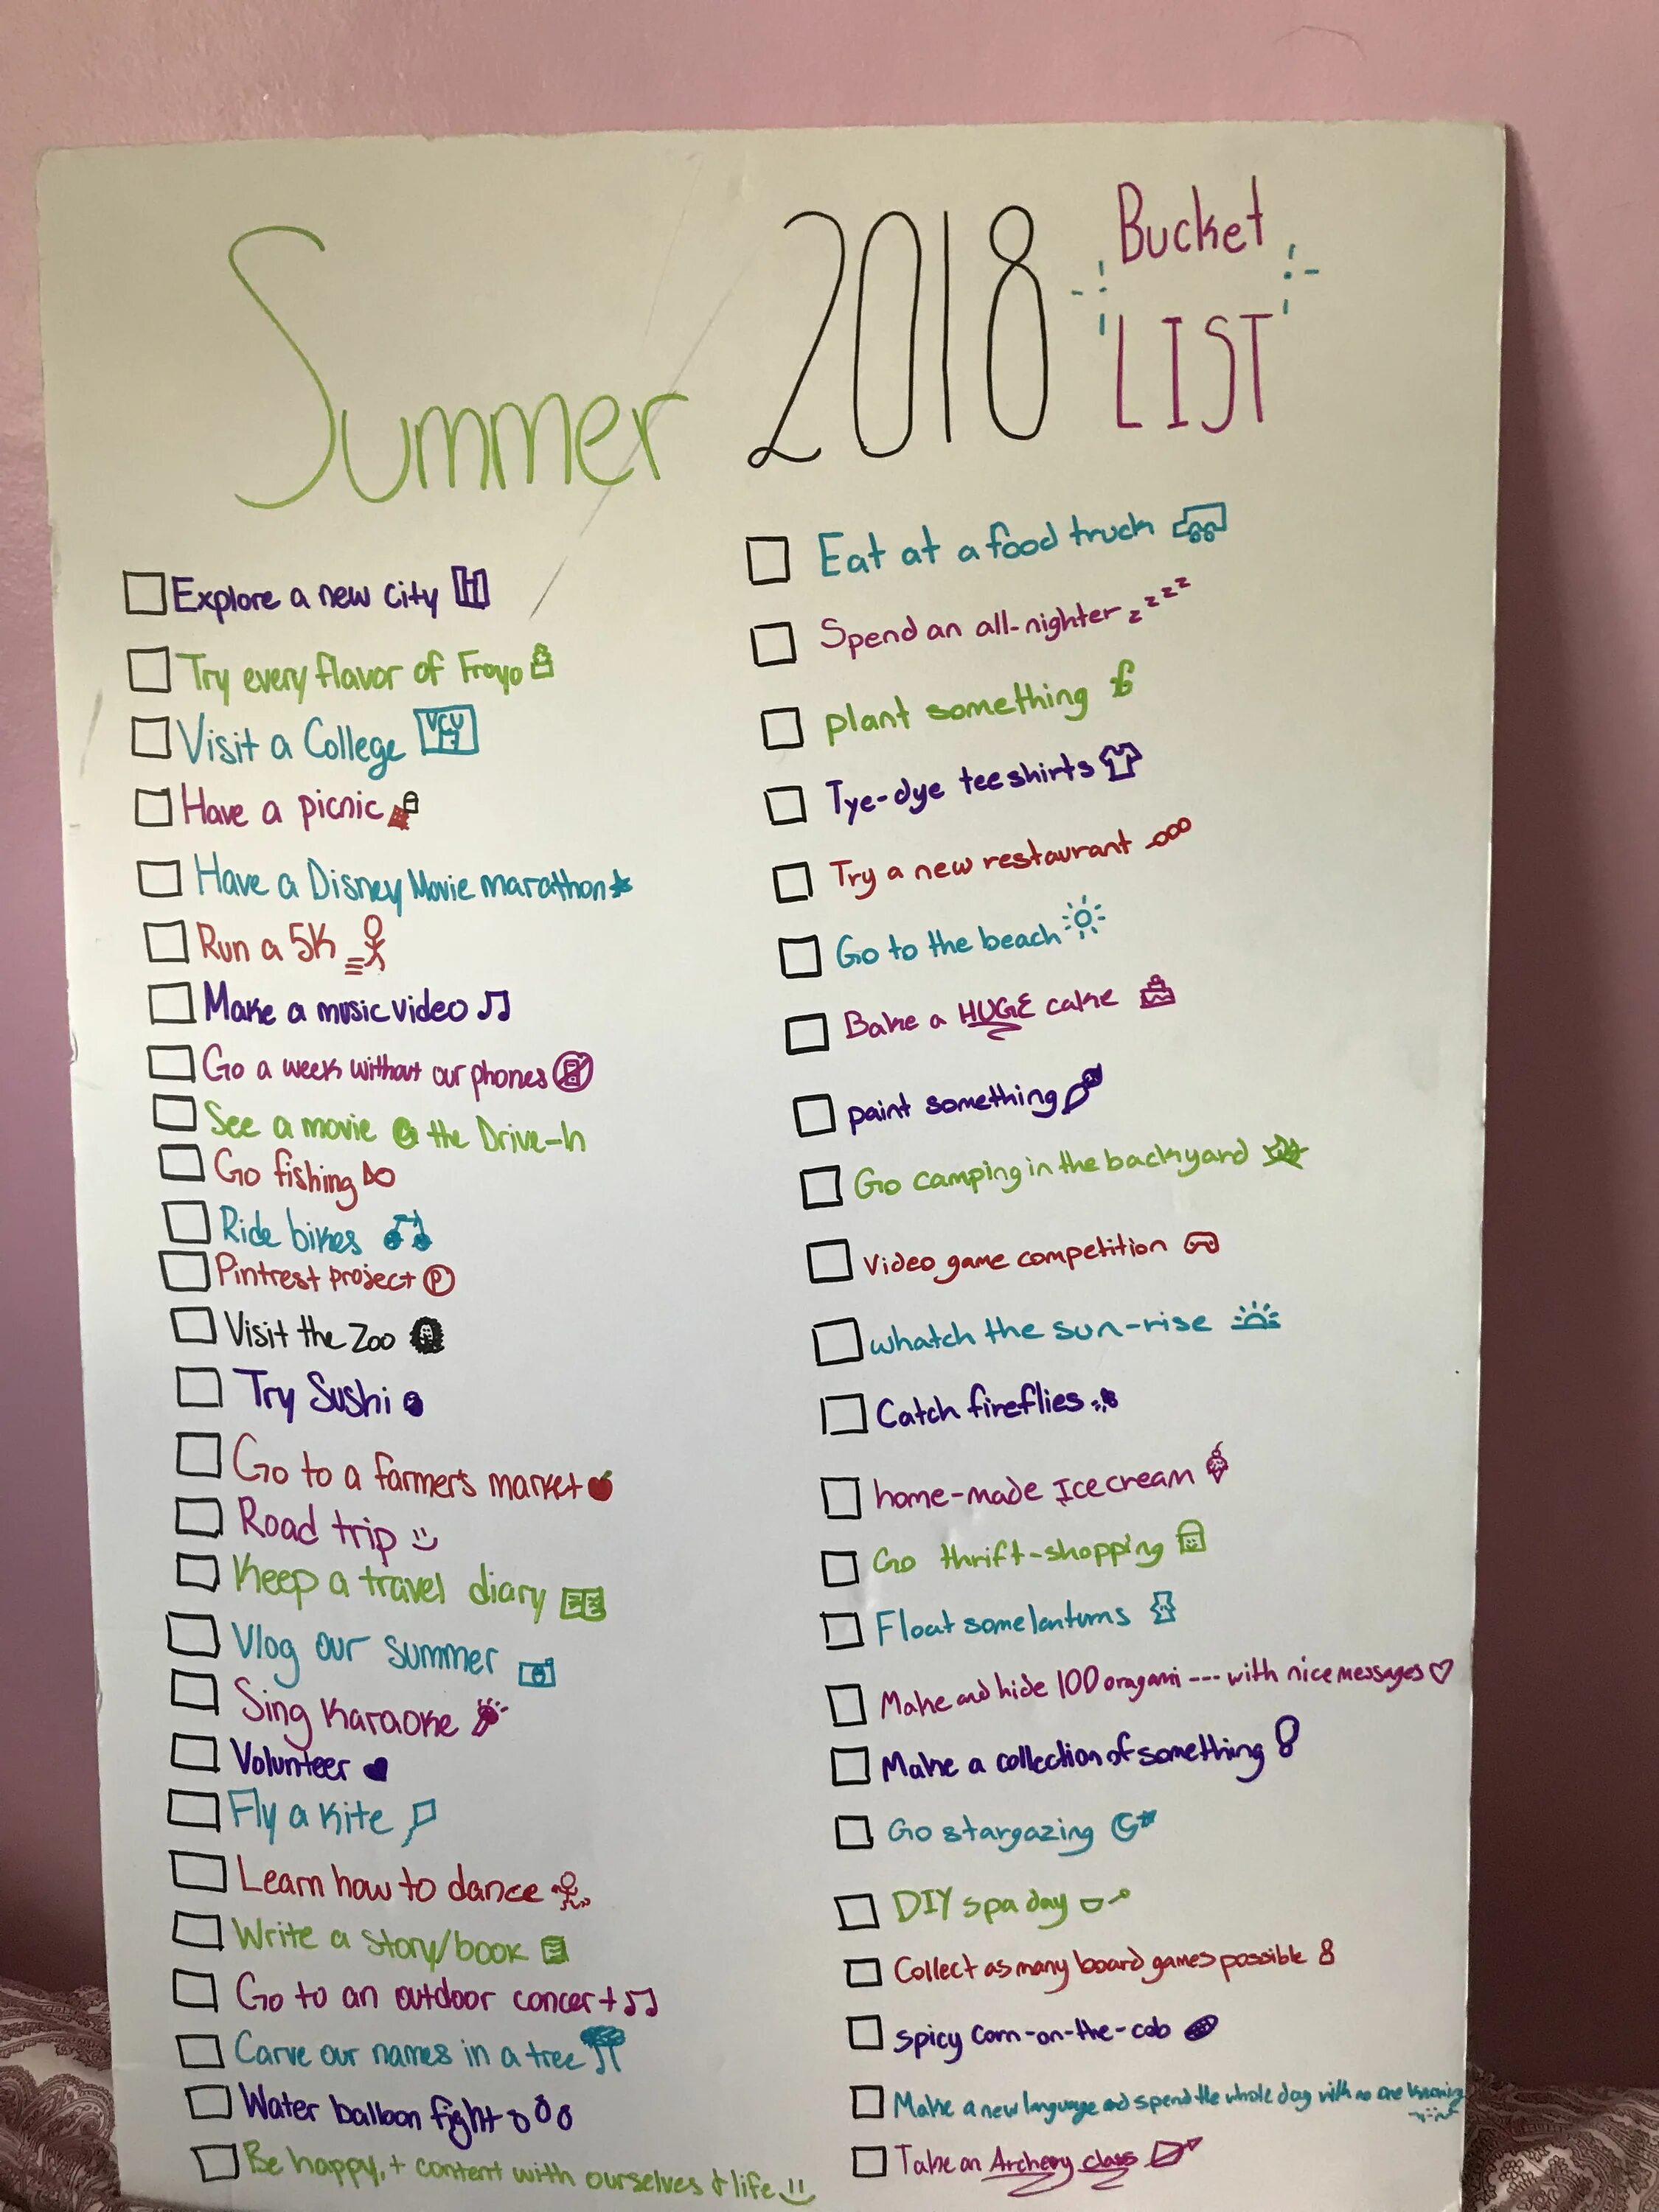 Summer 2018 Bucket
LIST
Explore a new city
Try every flavor of Froyo
Visit a College VCU
Have a picnic
Have a Disney Movie marathon
Run a 5K
Make a music video
Go a week without our phones
See a movie @ the Drive-In
Go fishing
Ride bikes
Pintrest project P
Visit the Zoo
Try Sushi
Go to a farmer's market
Road trip
Keep a travel diary
Vlog our summer
Sing Karaoke
Volunteer
Fly a kite
Learn how to dance
Write a story/book
Go to an outdoor concert
Carve our names in a tree
Water balloon fight
Be happy, + content with ourselves & life
Eat at a food truck
Spend an all-nighter zzzz
plant something
Tye-dye teeshirts
Try a new restaurant
Go to the beach
Bake a HUGE cake
paint something
Go camping in the backyard
Video game competition
whatch the sun-rise
Catch fireflies
home-made Ice cream
Go thrift-shopping
Float some lanturns
Make and hide 100 oragami --- with nice messages
Make a collection of something
Go stargazing
DIY spa day
Collect as many board games possible
spicy corn-on-the-cob
Make a new language and spend the whole day with no one knowing
Take an Archery class